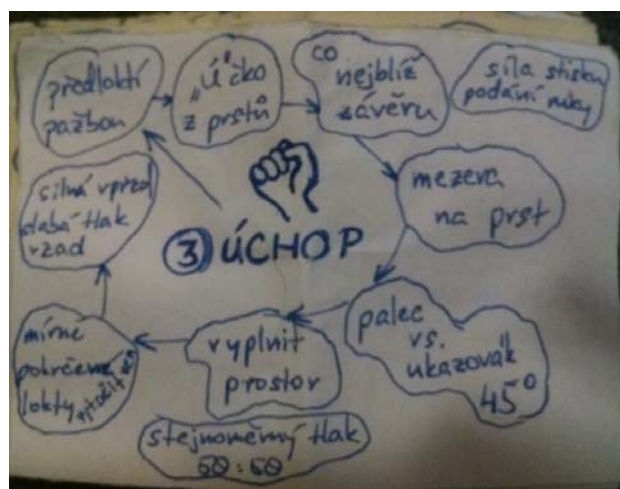 předloktí
pažbou
„Ú"čko
z prstů
co
nejblíž
závěru
síla stisku
podání ruky
mezera
na prst
palec
vs.
ukazovák
45°
vyplnit
prostor
stejnoměrný tlak
50:50
mírně
pokrčené
lokty vytočit ven
silná vpřed
slabá tlak
vzad
3 ÚCHOP